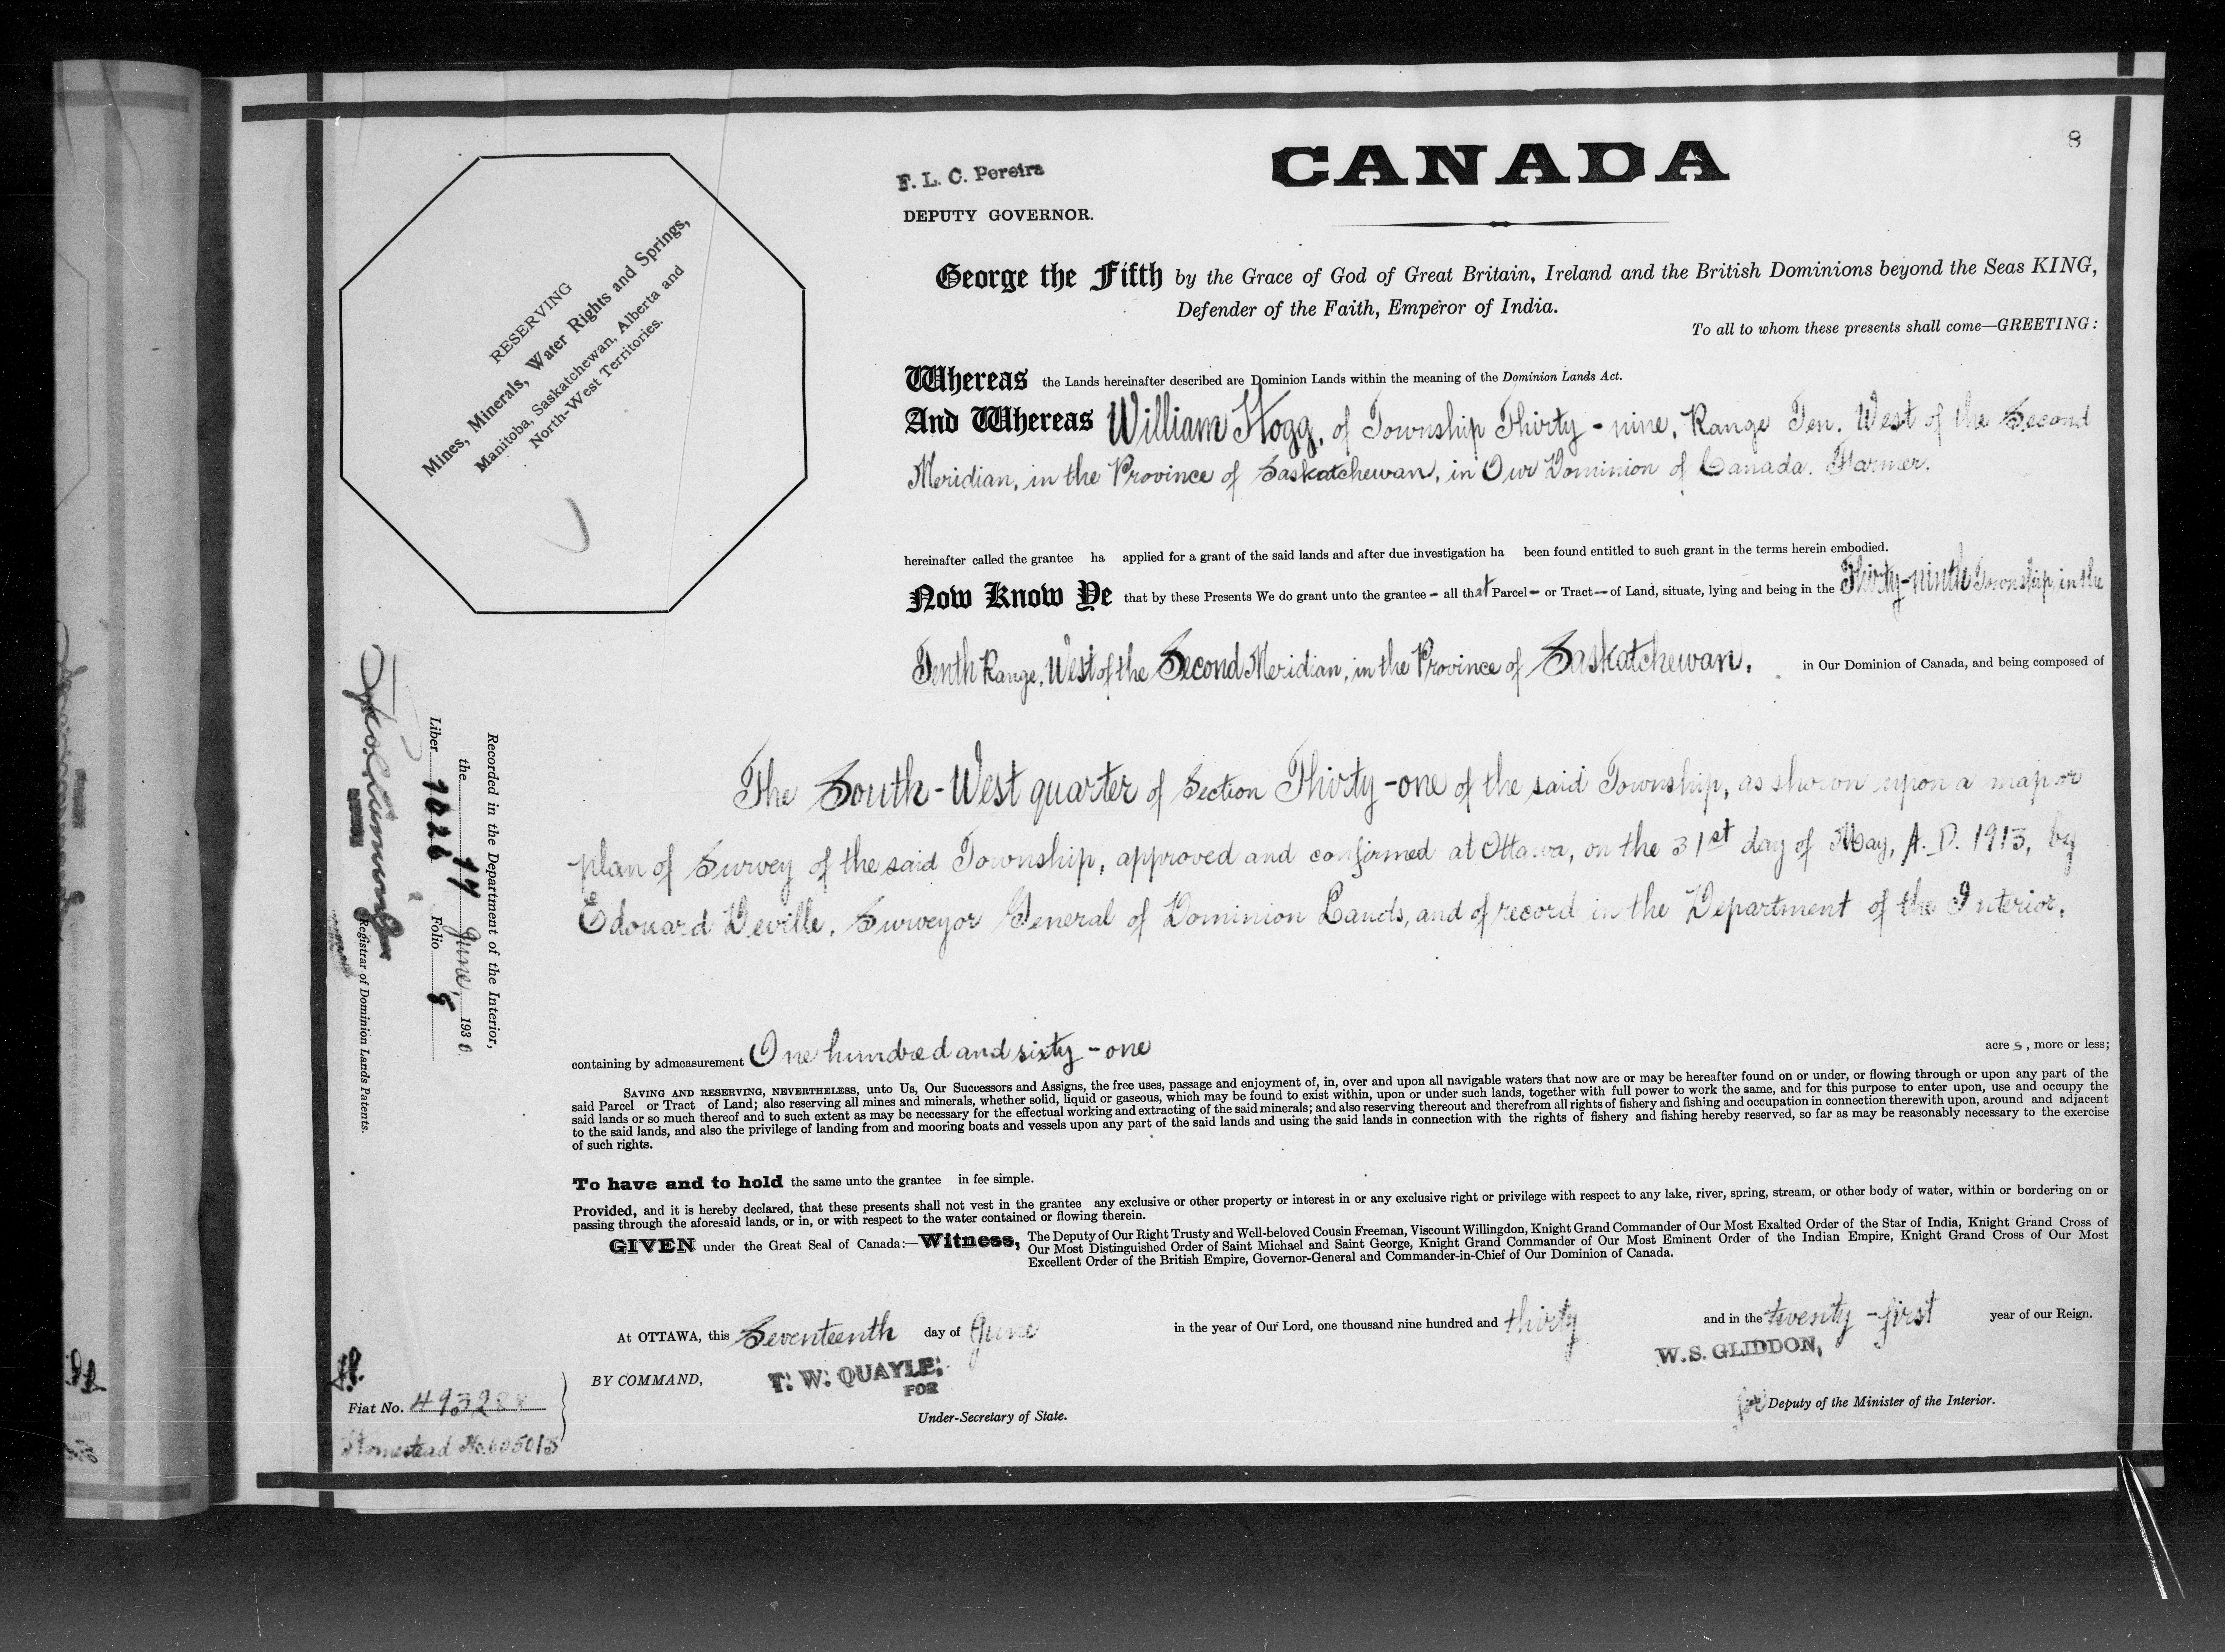 8
CANADA
F. L. C. Pereira
DEPUTY GOVERNOR.
RESERVING
Mines, Minerals, Water Rights and Springs,
Manitoba, Saskatchewan, Alberta and
North-West Territories.
George the Fifth by the Grace of God of Great Britain, Ireland and the British Dominions beyond the Seas KING,
Defender of the Faith, Emperor of India.
To all to whom these presents shall come—GREETING:
Whereas the Lands hereinafter described are Dominion Lands within the meaning of the Dominion Lands Act.
And Whereas William Hogg, of Township Thirty-nine, Range Ten, West of the Second
Meridian, in the Province of Saskatchewan, in Our Dominion of Canada. Farmer.
hereinafter called the grantee ha applied for a grant of the said lands and after due investigation ha been found entitled to such grant in the terms herein embodied.
Now Know Ye that by these Presents We do grant unto the grantee - all that Parcel - or Tract - of Land, situate, lying and being in the Thirty-ninth Township, in the
Tenth Range, West of the Second Meridian, in the Province of Saskatchewan, in Our Dominion of Canada, and being composed of
The South-West quarter of Section Thirty-one of the said Township, as shown upon a map or
plan of Survey of the said Township, approved and confirmed at Ottawa, on the 31st day of May, A.D. 1913, by
Edouard Deville, Surveyor General of Dominion Lands, and of record in the Department of the Interior,
containing by admeasurement One hundred and sixty-one acres, more or less;
SAVING AND RESERVING, NEVERTHELESS, unto Us, Our Successors and Assigns, the free uses, passage and enjoyment of, in, over and upon all navigable waters that now are or may be hereafter found on or under, or flowing through or upon any part of the
said Parcel or Tract of Land; also reserving all mines and minerals, whether solid, liquid or gaseous, which may be found to exist within, upon or under such lands, together with full power to work the same, and for this purpose to enter upon, use and occupy the
said lands or so much thereof and to such extent as may be necessary for the effectual working and extracting of the said minerals; and also reserving thereout and therefrom all rights of fishery and fishing and occupation in connection therewith upon, around and adjacent
to the said lands, and also the privilege of landing from and mooring boats and vessels upon any part of the said lands and using the said lands in connection with the rights of fishery and fishing hereby reserved, so far as may be reasonably necessary to the exercise
of such rights.
To have and to hold the same unto the grantee in fee simple.
Provided, and it is hereby declared, that these presents shall not vest in the grantee any exclusive or other property or interest in or any exclusive right or privilege with respect to any lake, river, spring, stream, or other body of water, within or bordering on or
passing through the aforesaid lands, or in, or with respect to the water contained or flowing therein.
GIVEN under the Great Seal of Canada:—Witness, The Deputy of Our Right Trusty and Well-beloved Cousin Freeman, Viscount Willingdon, Knight Grand Commander of Our Most Exalted Order of the Star of India, Knight Grand Cross of
Our Most Distinguished Order of Saint Michael and Saint George, Knight Grand Commander of Our Most Eminent Order of the Indian Empire, Knight Grand Cross of Our Most
Excellent Order of the British Empire, Governor-General and Commander-in-Chief of Our Dominion of Canada.
At OTTAWA, this Seventeenth day of June in the year of Our Lord, one thousand nine hundred and thirty and in the twenty-first year of our Reign.
BY COMMAND, T. W. QUAYLE, W. S. GLIDDON,
FOR
Under-Secretary of State. for Deputy of the Minister of the Interior.
Recorded in the Department of the Interior,
the 17 June, 1930.
Liber 1026 Folio 8
Registrar of Dominion Lands Patents.
Fiat No. 493288
Homestead No. 605013